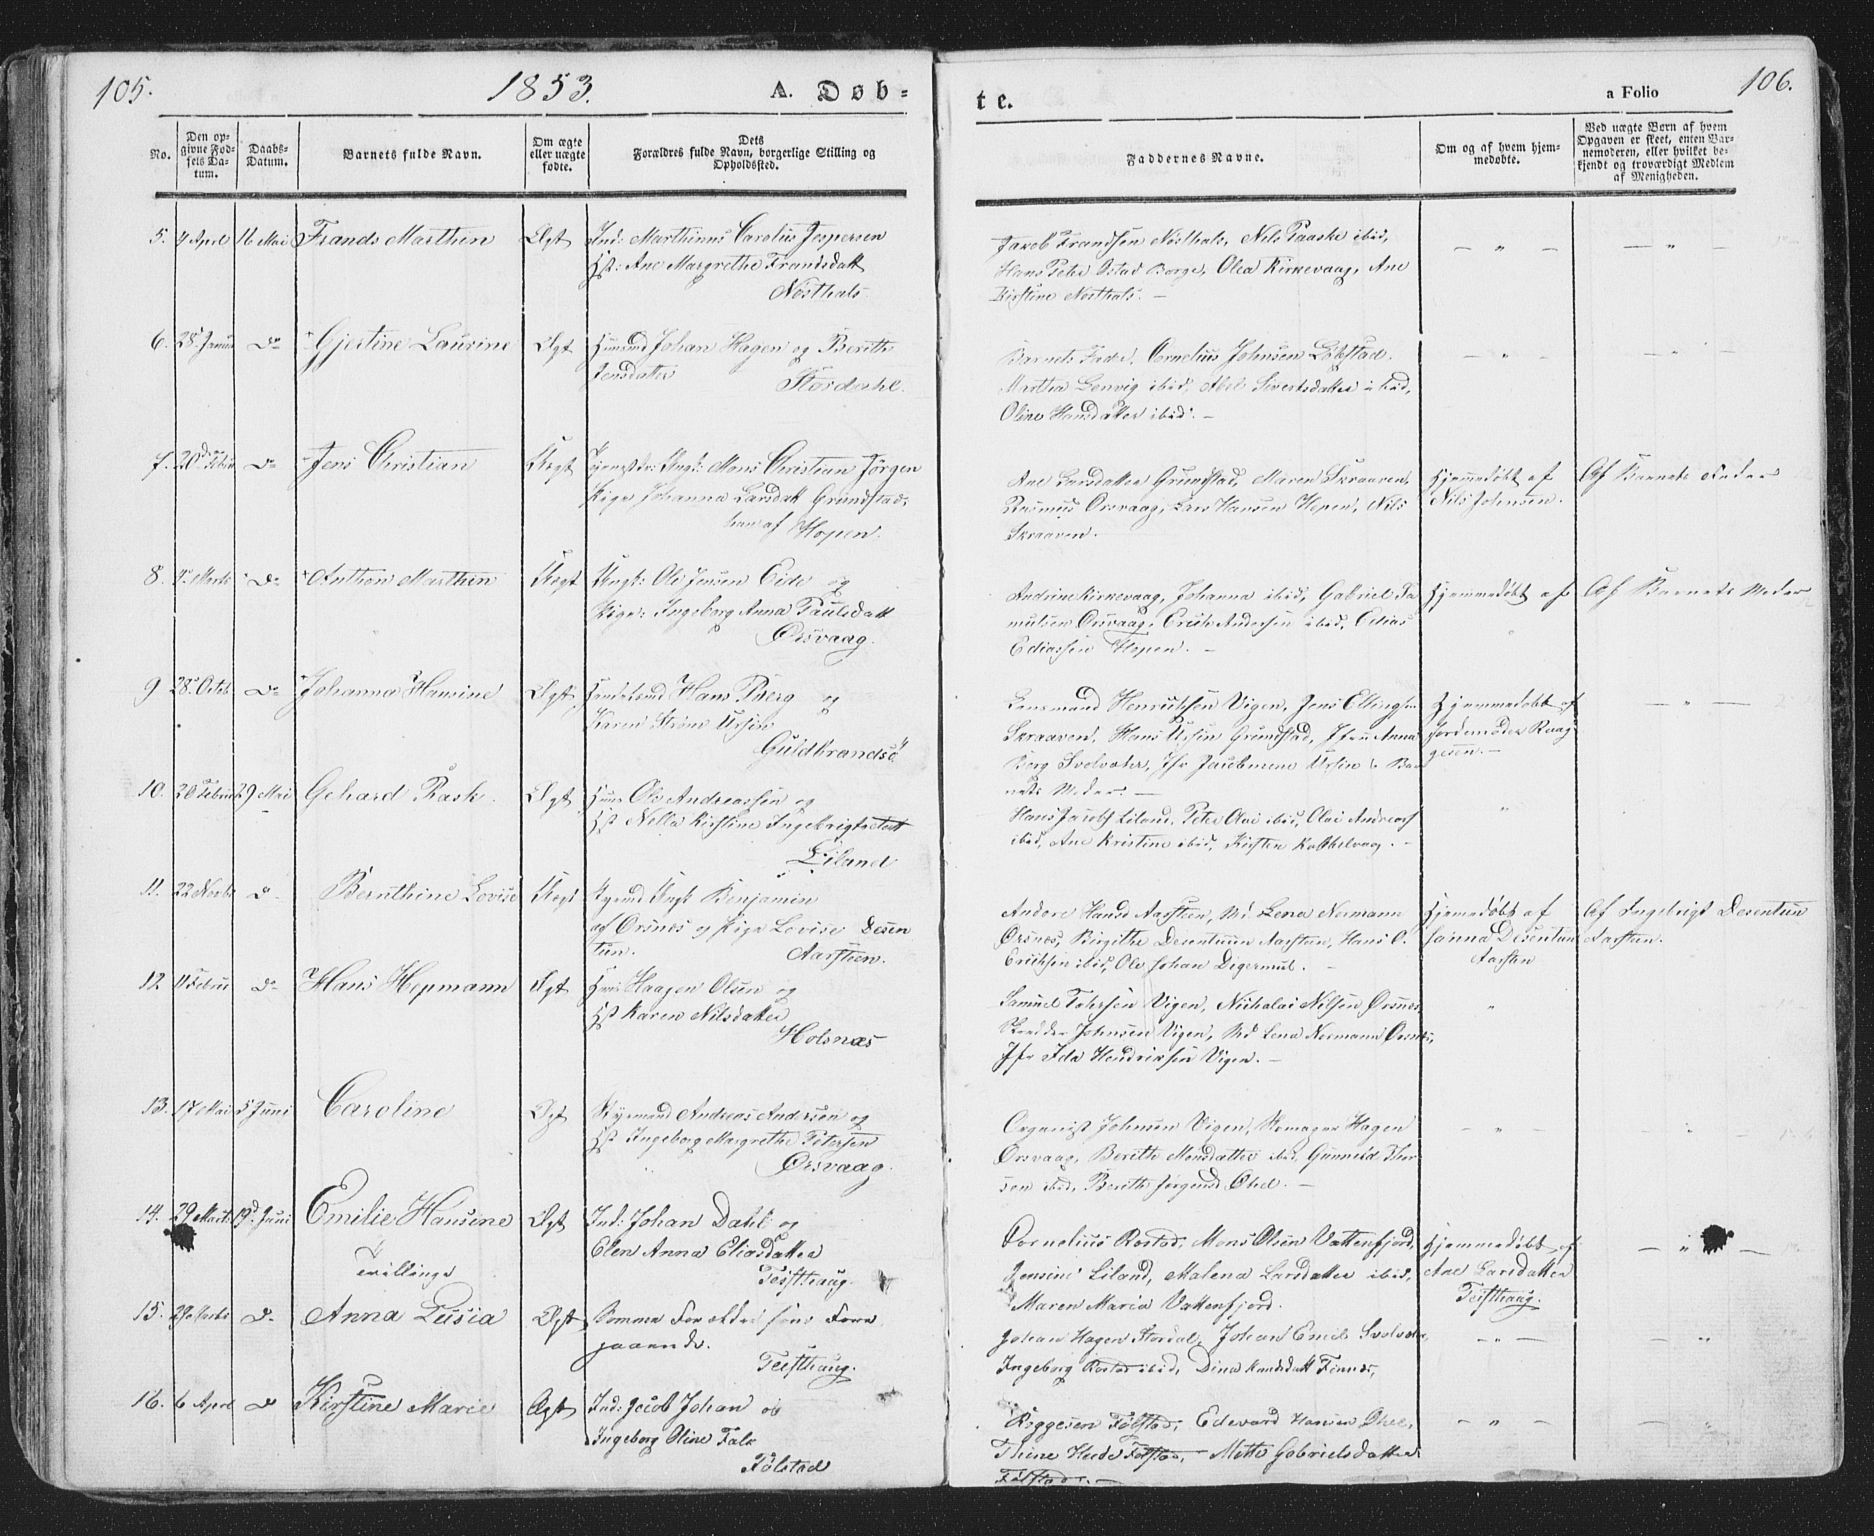 105. 1853. A. Døb-
te. a Folio 106.
No.
Den op-
givne Fød-
sels Da-
tum.
Daabs-
Datum.
Barnets fulde Navn.
Om ægte
eller uægte
fødte.
Dets
Forældres fulde Navn, borgerlige Stilling og
Opholdssted.
Faddernes Navne.
Om og af hvem hjem-
medøbte.
Ved uægte Børn af hvem
Opgaven er skeet, enten Bar-
nemoderen, eller hvilket be-
kjendt og troværdigt Medlem
af Menigheden.
5. 4 April 16 Mai Frands Marthin Ægt Ind: Marthinus Carolius Jespersen
Hst: Ane Margrethe Frandsdatt
Nøsthals.
Jakob Frandsen Nøsthals, Nils Paaske ibid,
Hans Peter Ostad Borge, Olea Kirkevaag, Ane
Kirstine Nøsthals. —
6. 28 Janua do Gjertine Laurine Ægt Huusmd Johan Hagen og Berith
Jensdatter Stordahl.
Barnets Fader, Cornelius Johnsen Løkstad.
Martha Lenvig ibid, Abel Sivertsdatter ibid,
Oline Hansdatter ibid. —
7. 20 Febru do Jens Christian Uægt Ungk: Mons Christian Jørgen
Pige Johanna Larsdatt Grundstad,
han af Hopen.
Ane Larsdatter Grundstad, Maren Skraaven,
Rasmus Orsvaag, Lars Hansen Hopen, Nils
Skraaven.
Hjemmedøbt af
Nils Johnsen.
Af Barnets Fader
8. Marts do Anthon Marthin Uægt Ungk: Ole Jensen Eide og
Pige: Ingeborg Anna Paulsdatt
Ørsvaag.
Andrine Kirkevaag, Johanna ibid, Gabriel Sa
muelsen Orsvaag, Erich Andersen ibid, Edias
Ediassen Hopen. —
Hjemmedøbt af
Af Barnets Moder
9 28 Octob do Johanna Hansine Ægt Handelsmd Hans Berg og
Karen Strøm Ursin
Guldbrandsö
Lensmand Henriksen Vigen, Jens Ellingsen
Skraaven, Hans Ursin Grundstad, Jfru Anna
Berg Svolvær, Jfr Jacobmine Ursin & Bar
nets Moder. —
Hjemmedøbt af
Jordemoder Roag
gesen. —
10. 20 Februa 29 Mai Gehard Rask. Ægt Huus Ole Andreassen og
Hst Nella Kirstine Ingebrigtsdatt
Liland
Hans Jacobs Liland, Peter Olai ibid, Olai Andreas
ibid, Ane Kristine ibid, Kirsten Kalthelvaag. —
11. 22 Novbr do Bernthine Lovise Uægt Ungk Benjamin
af Orsnes og Pige Lovise Desen
tun. Aarsteen.
Andore Hansd Aarsteen, Md. Lena Normann
Ørsnes, Birgithe Desentuun Aarsteen, Hans O.
Erichsen ibid, Ole Johan Digermul. —
Hjemmedøbt af
Hanna Desentun
Aarsten
Af Ingebrigt Desentun
Aarsteen.
12 11 Febru do Hans Hepmann Ægt Huus Haagen Olsen og
Hst Karen Nilsdatter
Holsnæs
Samuel Vigen, Nicholai Nilsen Ørsnes
Skredder Johnsen Vigen, Md Lena Normann Ørsnes,
Jfr Ida Hendriksen Vigen. —
13. 17 Mai 5 Juni Caroline Ægt Andreas Andersen og
Hst Ingeborg Margrethe Petersen
Ørsvaag.
Organist Johnsen Vigen, Skomager Hagen
Orsvaag, Berith Monsdatter ibid, Gunnild Thor
sen ibid, Berith Jørgensd Ohel. —
14. 29 Marts 19d Juni Emilie Hansine Ægt Ind: Johan Dahl og
Tvillinge Elen Anna Eliasdatter
Teisthaug.
Cornelius Rostad, Mons Olsen Vattenfjord,
Jensine Liland, Malena Larsdatter ibid,
Maren Maria Vattenfjord.
Hjemmedøbt af
Ane Larsdatter
Teisthaug.
15. 29 Marts do Anna Lusia Ægt Samme Forældre som Fore
gaaende.
Teisthaug.
Johan Hagen Stordal, Johan Emil Svolvær,
Ingeborg Rostad ibid, Dina Finnes,
16. 6 April do Kirstine Marie Ægt Ind: Jacob Johan og
Ingeborg Oline Falk
Følstad
Roggesen Følstad, Edevard Hansen Ohel,
Thine Følstad, Mette Gabrielsdatter
Følstad. —